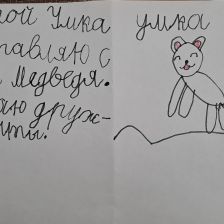 ой Умка
тавляю с
Медведя.
аю друж-
ты.
умка